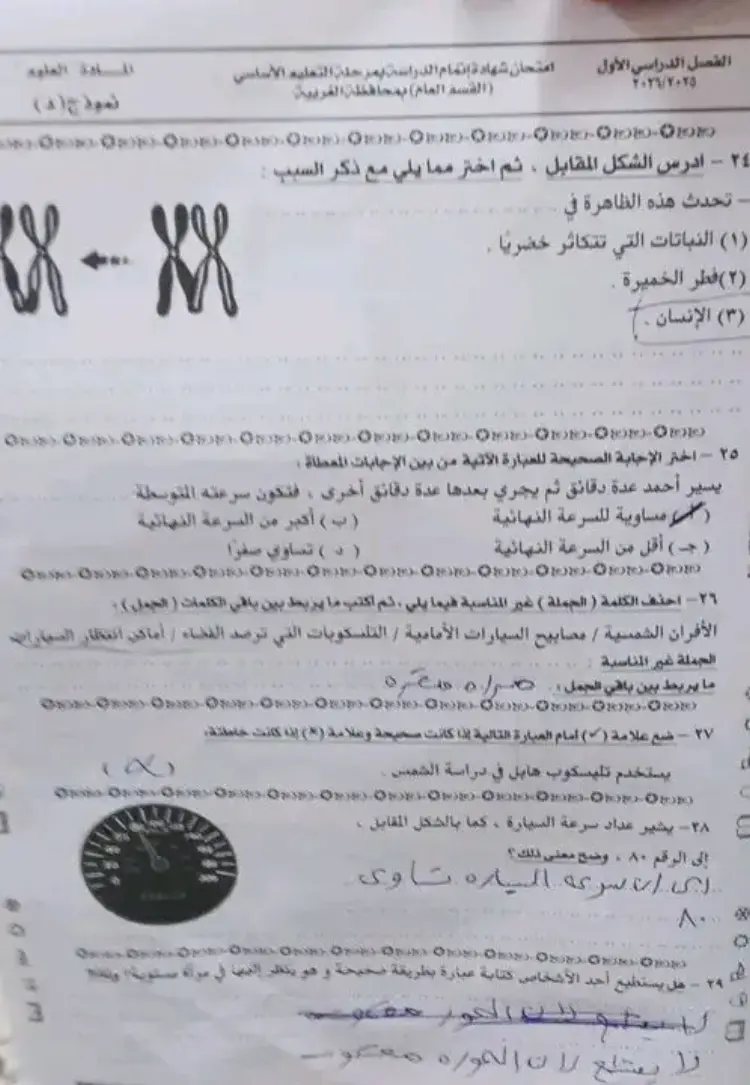 الفصل الدراسي الأول
٢٠٢٦/٢٠٢٥
امتحان شهادة إتمام الدراسة بمرحلة التعليم الأساسي
(القسم العام) بمحافظة الغربية
المادة العلوم
نموذج (د)
٢٤ – ادرس الشكل المقابل ، ثم اختر مما يلي مع ذكر السبب :
– تحدث هذه الظاهرة في
(١) النباتات التي تتكاثر خضريًا .
(٢) فطر الخميرة .
(٣) الإنسان .
٢٥ – اختر الإجابة الصحيحة للعبارة الآتية من بين الإجابات المعطاة :
يسير أحمد عدة دقائق ثم يجري بعدها عدة دقائق أخرى ، فتكون سرعته المتوسطة
( ) مساوية للسرعة النهائية ( ب ) أكبر من السرعة النهائية
( جـ ) أقل من السرعة النهائية ( د ) تساوي صفرًا
٢٦ – احذف الكلمة ( الجملة ) غير المناسبة فيما يلي ، ثم اكتب ما يربط بين باقي الكلمات ( الجمل ) :
الأفران الشمسية / مصابيح السيارات الأمامية / التلسكوبات التي ترصد الفضاء / أماكن انتظار السيارات
الجملة غير المناسبة :
ما يربط بين باقي الجمل : مراه مقعره
٢٧ – ضع علامة (✓) أمام العبارة التالية إذا كانت صحيحة وعلامة (×) إذا كانت خاطئة :
يستخدم تليسكوب هابل في دراسة الشمس . (×)
٢٨ – يشير عداد سرعة السيارة ، كما بالشكل المقابل ،
إلى الرقم ٨٠ ، وضح معنى ذلك؟
اى ان سرعه السياره تساوى
٨٠
٢٩ – هل يستطيع أحد الأشخاص كتابة عبارة بطريقة صحيحة و هو ينظر إليها في مرآة مستوية؟
لا يستطيع لان الصوره معكوسه